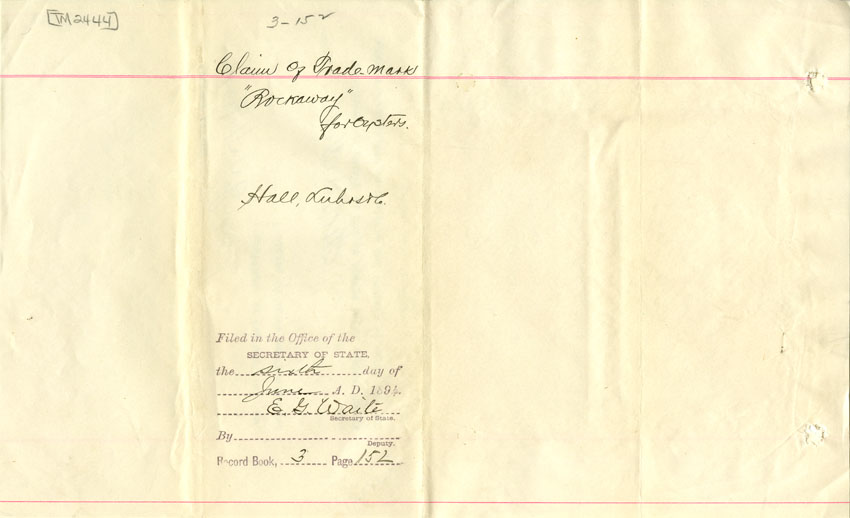 [TM2444]
3-152
Claim of Trade mark
"Rockaway"
for Oysters.
Hall, Luhrs & Co.
Filed in the Office of the
SECRETARY OF STATE,
the sixth day of
June A. D. 1894.
E. G. Waite
Secretary of State.
By
Deputy.
Record Book, 3 Page 152